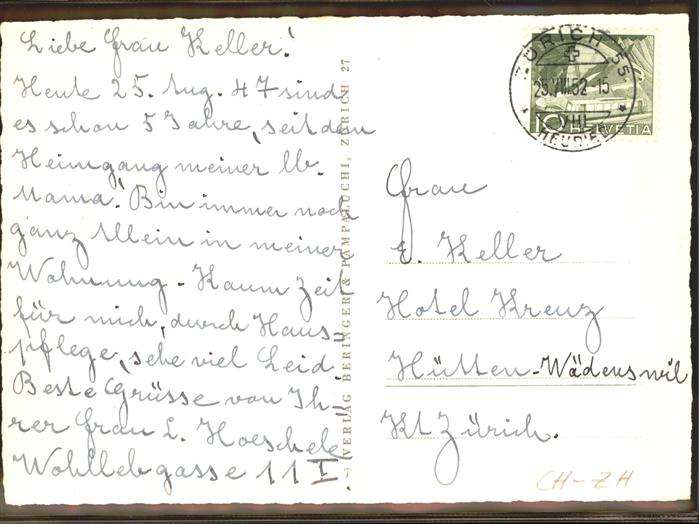 Liebe Frau Keller!
Heute 25. Aug. 47 sind
es schon 5 Jahre, seit dem
Heimgang meiner lb.
Mama! Bin immer noch
ganz Allein in meiner
Wohnung - Kaum Zeit
für mich, durch Haus-
pflege, sehe viel Leid.
Beste Grüsse von Ih-
rer Frau L. Hoeschele
Wohllebgasse 11 I
VERLAG BERINGER & PAMPALUCHI, ZÜRICH 27
ZÜRICH 55
25.VIII.52-15
VIII
(NEUBIEL)
10 HELVETIA
Frau
E. Keller
Hotel Kreuz
Hütten-Wädenswil
Kt Zürich.
CH-ZH